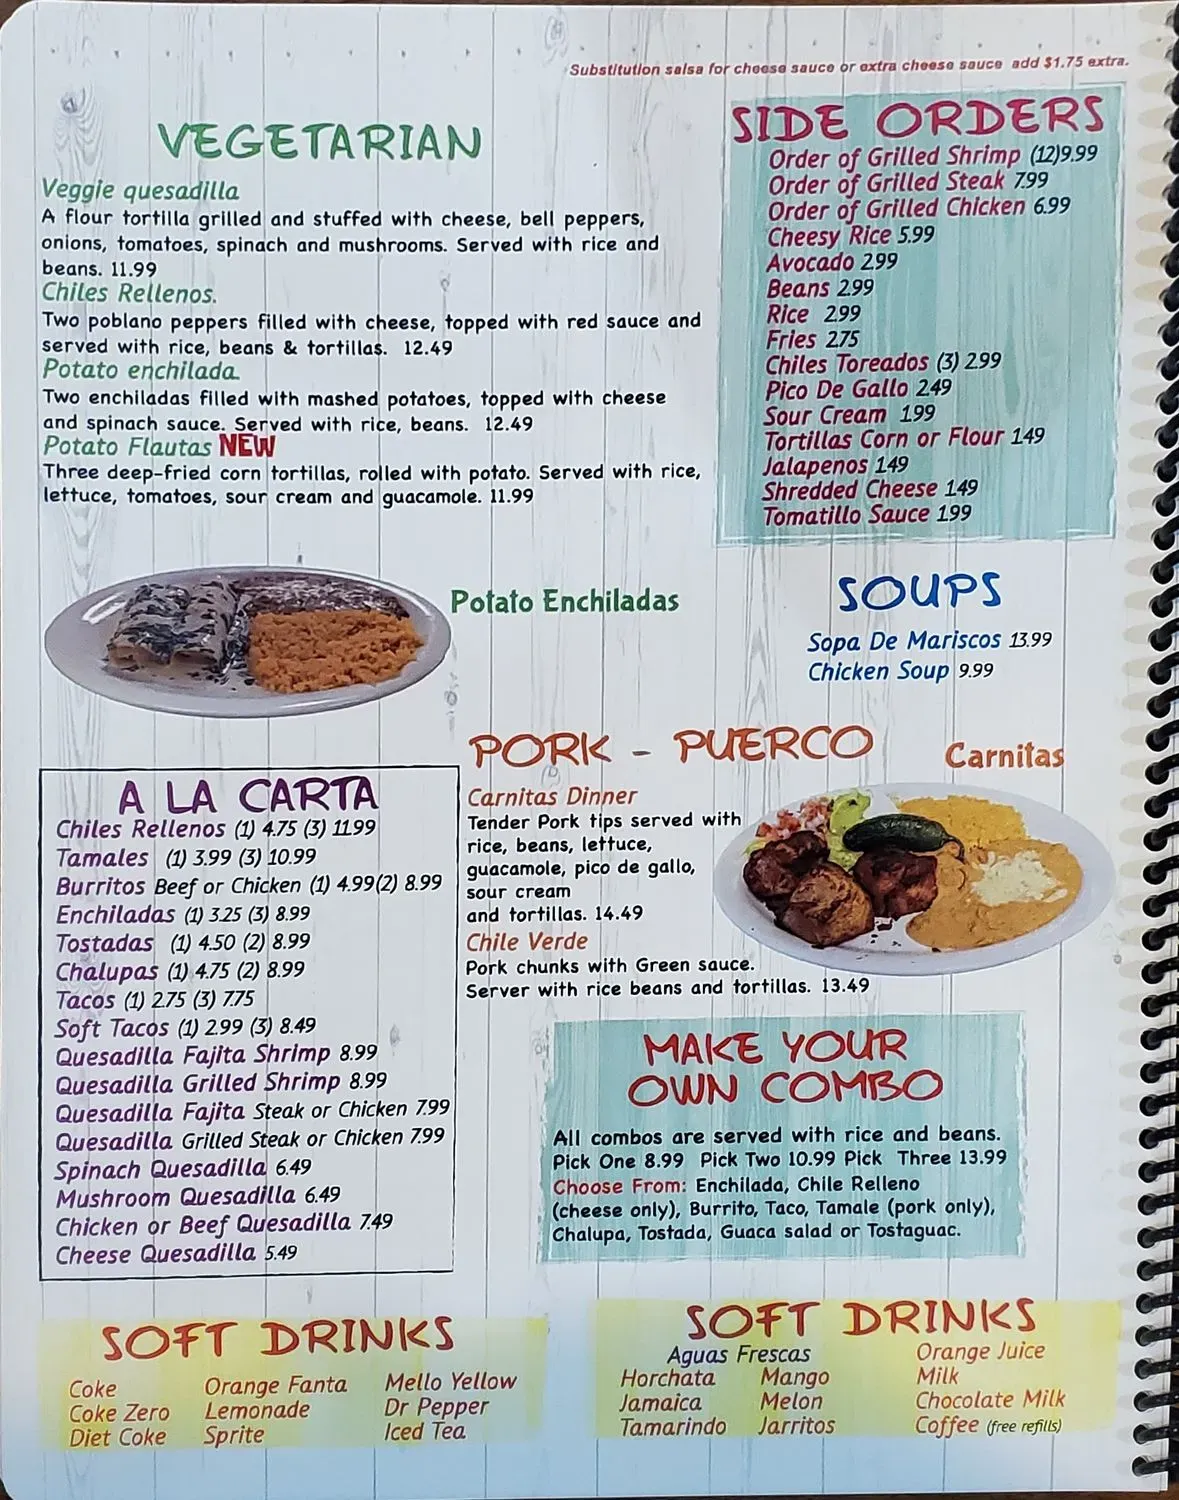 Substitution salsa for cheese sauce or extra cheese sauce add $1.75 extra.
VEGETARIAN
Veggie quesadilla
A flour tortilla grilled and stuffed with cheese, bell peppers,
onions, tomatoes, spinach and mushrooms. Served with rice and
beans. 11.99
Chiles Rellenos.
Two poblano peppers filled with cheese, topped with red sauce and
served with rice, beans & tortillas. 12.49
Potato enchilada
Two enchiladas filled with mashed potatoes, topped with cheese
and spinach sauce. Served with rice, beans. 12.49
Potato Flautas NEW
Three deep-fried corn tortillas, rolled with potato. Served with rice,
lettuce, tomatoes, sour cream and guacamole. 11.99
SIDE ORDERS
Order of Grilled Shrimp (12)9.99
Order of Grilled Steak 7.99
Order of Grilled Chicken 6.99
Cheesy Rice 5.99
Avocado 2.99
Beans 2.99
Rice 2.99
Fries 2.75
Chiles Toreados (3) 2.99
Pico De Gallo 2.49
Sour Cream 1.99
Tortillas Corn or Flour 1.49
Jalapenos 1.49
Shredded Cheese 1.49
Tomatillo Sauce 1.99
Potato Enchiladas
SOUPS
Sopa De Mariscos 13.99
Chicken Soup 9.99
PORK - PUERCO
Carnitas
Carnitas Dinner
Tender Pork tips served with
rice, beans, lettuce,
guacamole, pico de gallo,
sour cream
and tortillas. 14.49
Chile Verde
Pork chunks with Green sauce.
Server with rice beans and tortillas. 13.49
A LA CARTA
Chiles Rellenos (1) 4.75 (3) 11.99
Tamales (1) 3.99 (3) 10.99
Burritos Beef or Chicken (1) 4.99(2) 8.99
Enchiladas (1) 3.25 (3) 8.99
Tostadas (1) 4.50 (2) 8.99
Chalupas (1) 4.75 (2) 8.99
Tacos (1) 2.75 (3) 7.75
Soft Tacos (1) 2.99 (3) 8.49
Quesadilla Fajita Shrimp 8.99
Quesadilla Grilled Shrimp 8.99
Quesadilla Fajita Steak or Chicken 7.99
Quesadilla Grilled Steak or Chicken 7.99
Spinach Quesadilla 6.49
Mushroom Quesadilla 6.49
Chicken or Beef Quesadilla 7.49
Cheese Quesadilla 5.49
MAKE YOUR
OWN COMBO
All combos are served with rice and beans.
Pick One 8.99 Pick Two 10.99 Pick Three 13.99
Choose From: Enchilada, Chile Relleno
(cheese only), Burrito, Taco, Tamale (pork only),
Chalupa, Tostada, Guaca salad or Tostaguac.
SOFT DRINKS
Coke
Coke Zero
Diet Coke
Orange Fanta
Lemonade
Sprite
Mello Yellow
Dr Pepper
Iced Tea
SOFT DRINKS
Aguas Frescas
Horchata
Jamaica
Tamarindo
Mango
Melon
Jarritos
Orange Juice
Milk
Chocolate Milk
Coffee (free refills)